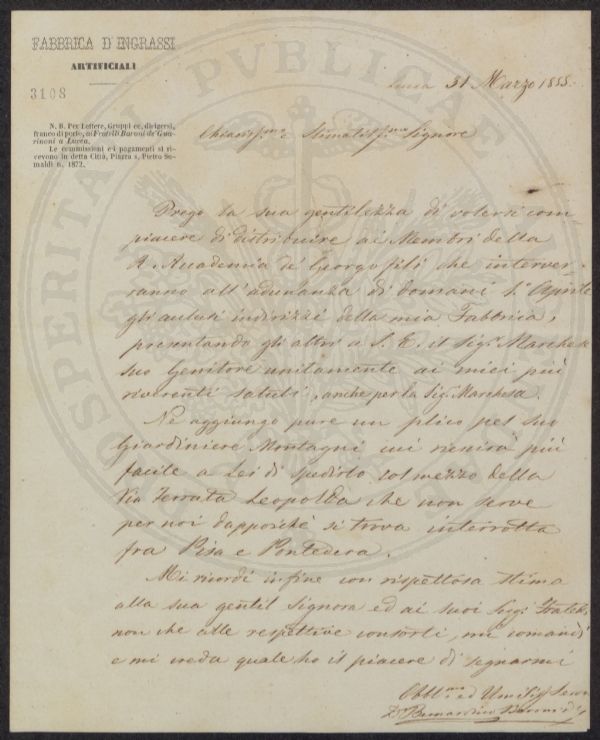 FABBRICA D'INGRASSI
ARTIFICIALI
3108
N. B. Per Lettere, Gruppi ec. dirigersi,
franco di porto, ai Fratelli Baroni de' Gua-
rinoni a Lucca.
Le commissioni e i pagamenti si ri-
cevono in detta Città, Piazza s. Pietro So-
maldi n. 1872.
Lucca 31 Marzo 1855.
Chiariss.mo e Stimatiss.mo Signore
Prego la sua gentilezza di volersi com-
piacere di distribuire ai Membri della
R. Accademia de' Georgofili che interver-
ranno all'adunanza di domani 1.° Aprile
gli acclusi indirizzi della mia Fabbrica,
presentando gli altri a S. E. il Sig.r Marchese
suo Genitore unitamente ai miei più
riverenti saluti, anche per la Sig.ra Marchesa.
Ne aggiungo pure un plico pel suo
Giardiniere Montagni cui riuscirà più
facile a Lei di spedirlo col mezzo della
Via Ferrata Leopolda che non serve
per noi dapposiché si trova interrotta
fra Pisa e Pontedera.
Mi ricordi infine con rispettosa stima
alla sua gentil Signora ed ai suoi Sigg.i Fratelli
non che alle respettive consorti, mi comandi
e mi creda quale ho il piacere di segnarmi
Obbl.mo ed Um.
D.r Bernardino Baroni
PROSPERITATI PVBLICAE